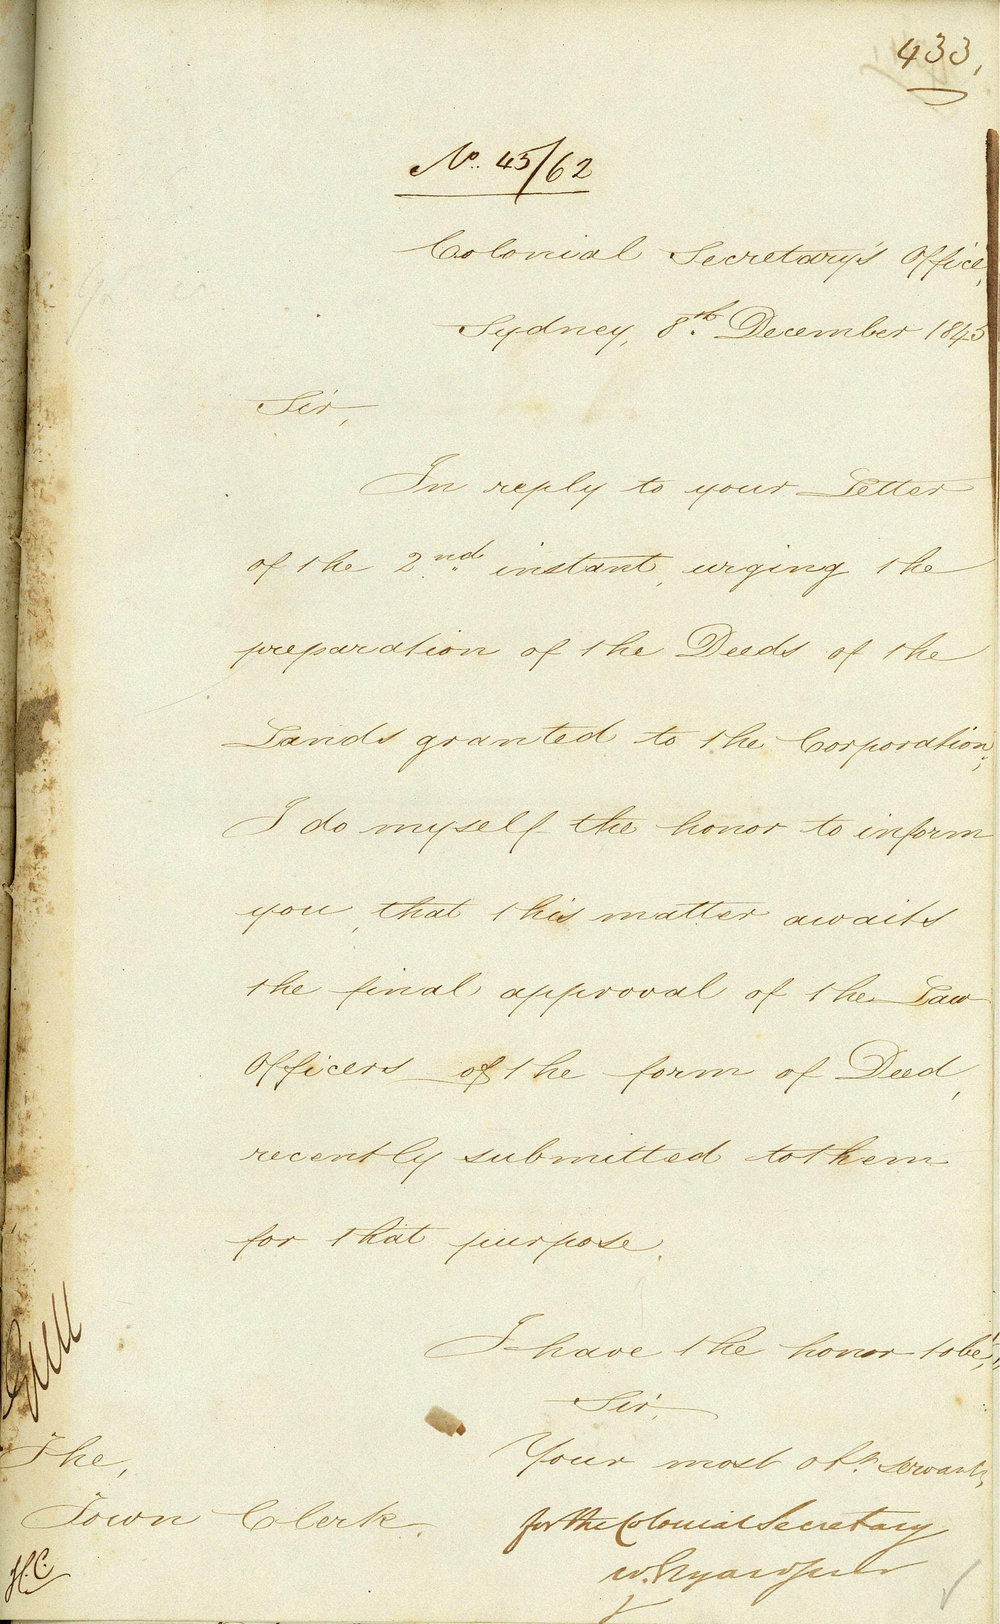 433.
No. 45/62
Colonial Secretary's Office,
Sydney, 8th. December 1845
Sir,
In reply to your Letter
of the 2nd. instant, urging the
preparation of the Deeds of the
Lands granted to the Corporation;
I do myself the honor to inform
you, that this matter awaits
the final approval of the Law
Officers of the form of Deed,
recently submitted to them
for that purpose.
I have the honor to be,
Sir,
Your most obt. servant,
for the Colonial Secretary
W. Elyard Junr
The,
Town Clerk.
H.C.